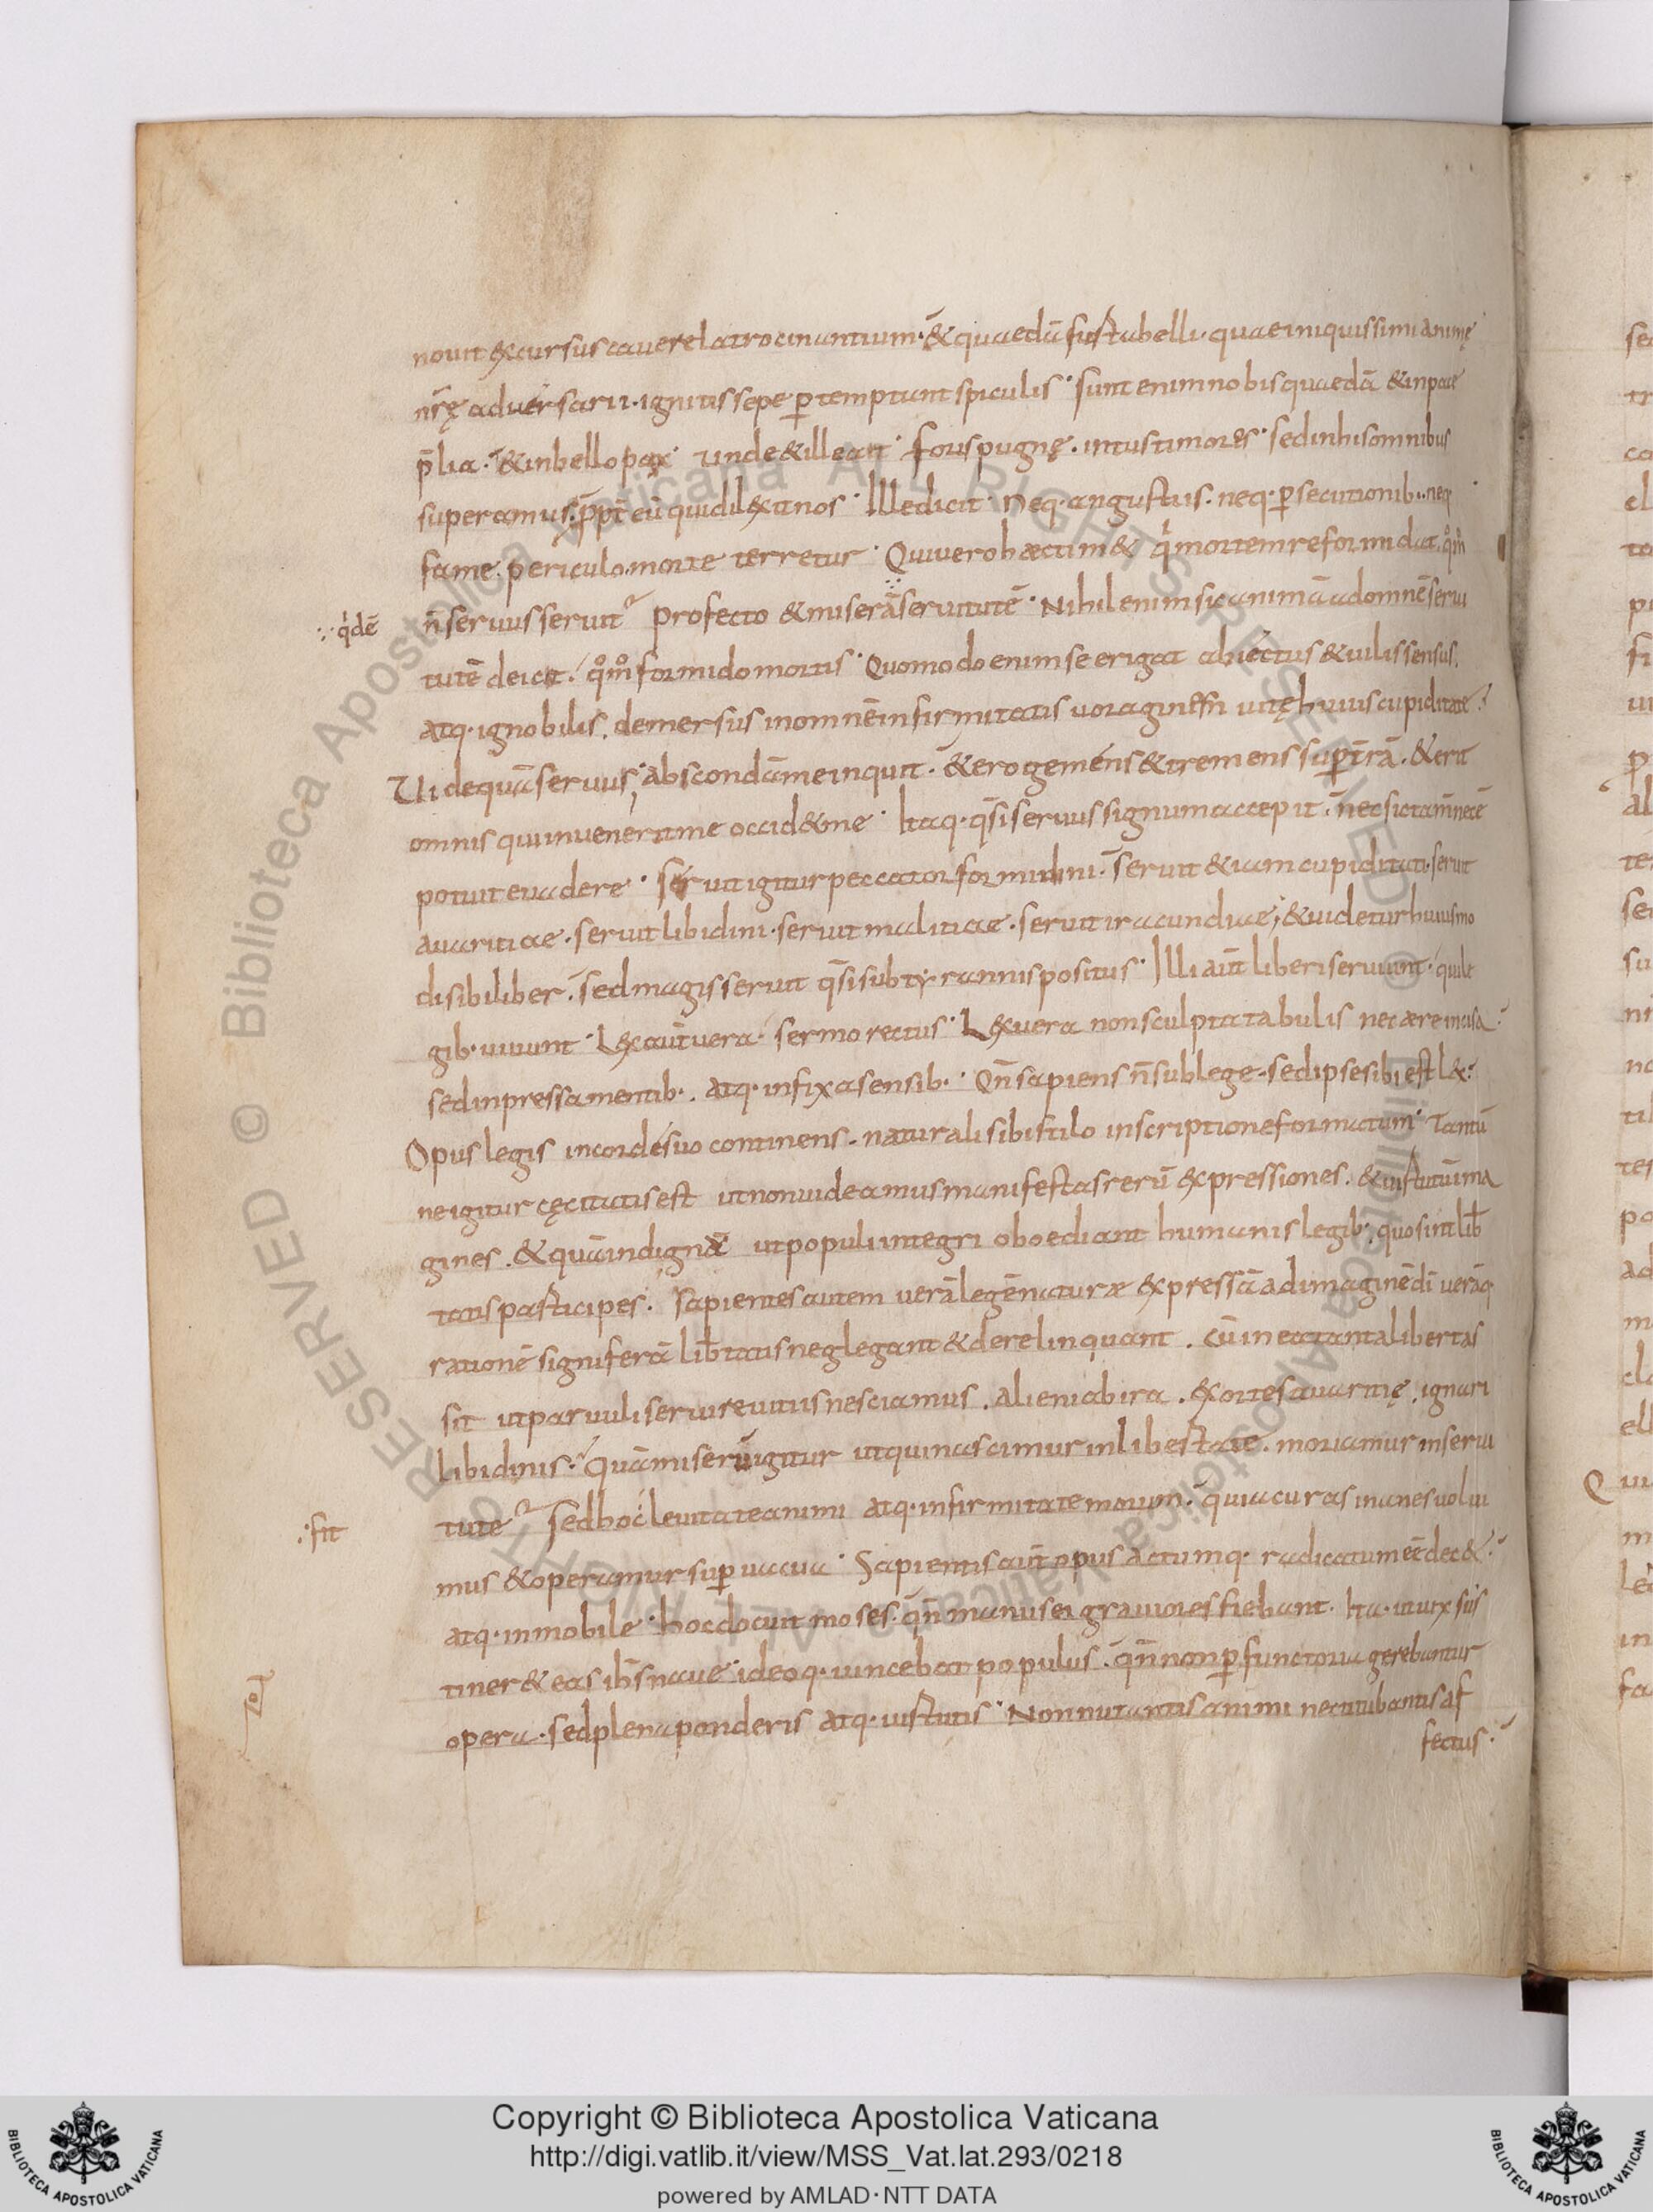 nouit excursus cauere latrocinantium · & quaedā fusta belli · quae iniquissimi animę
nr̄ę aduersarii · ignitis sepe ꝑtemptant spiculis · sunt enim nobis quaedā & in pace
p̄lia · & in bello pax · unde & ille ait · foris pugnę · intus timores · sed in his omnibus
superamus · ꝓpt̄ eū qui dilexit nos · Ille dicit · neq· angustiis · neq· ꝑsecutionib· neq
fame · periculo · morte terretur · Qui uero haec tim& qͥ mortem reformidat · qͦm̊
n̄ seruus seruit profecto & miserā seruitutē · Nihil enim sic animā ad omnē serui
∵ qͥdē
tutē deicit · qͦm̊ formido mortis · Quomodo enim se erigat abiectus & uilis sensus ·
atq· ignobilis · demersus in omnē infirmitatis uoraginē sn̄ uitę huius cupiditate ·
Uide quā seruus ; abscondā me inquit · & ero gemens & tremens sup̄ t̄rā · & erit
omnis qui inuenerit me occid& me · Itaq· q̄si seruus signum accepit · nec sic tam̄ necē
potuit euadere · seruit igitur peccator formidini · seruit & iam cupiditati · seruit
auaritiae · seruit libidini · seruit malitiae · seruit iracundiae ; & uidetur huiusmo
di sibi liber · sed magis seruit q̄si sub tyrannis positus · Illi aūt liberi seruiunt · qui le
gib· uiuunt · Lex aūt uera · sermo rectus · Lex uera non sculpta tabulis nec aere incisa ·
sed inpressa mentib· · atq· infixa sensib· · Qn̄ sapiens n̄ sub lege · sed ipse sibi est lex
Opus legis in corde suo continens · naturali sibi stilo inscriptione formatum · Tantū
ne igitur cęcitatis est ut non uideamus manifestas rerū expressiones · & uirtutū ima
gines · & quā indignā ut populi integri oboediant humanis legib; quo sint lib̄
tatis participes · sapientes autem uerā legē naturæ expressā ad imaginē dī uerāq
rationē signiferā lib̄tatis neglegant & derelinquant · cū in ea tanta libertas
sit ut paruuli seruire uitiis nesciamus · alieni ab ira · exortes auaritię · ignari
libidinis · quā miserū igitur ut qui nascimur in libertate · moriamur in serui
tute sed hoc leuitate animi atq· infirmitate morum · quia curas inanes uolui
∴ fit
mus & operamur sup̄uacua · Sapientis aūt opus actumq· radicatum ēē dec& ·
atq· inmobile · hoc docuit moses · qn̄ manus ei grauiores fiebant · Ita · ut uix sus
tiner& eas ih̄s naue · ideoq· uincebat populus · qn̄ non ꝑfunctoria gerebantur
opera · sed plena ponderis atq· uirtutis · Non nutantis animi nec titubantis af
fectus ·
Copyright © Biblioteca Apostolica Vaticana
http://digi.vatlib.it/view/MSS_Vat.lat.293/0218
powered by AMLAD · NTT DATA
BIBLIOTECA APOSTOLICA VATICANA
BIBLIOTECA APOSTOLICA VATICANA